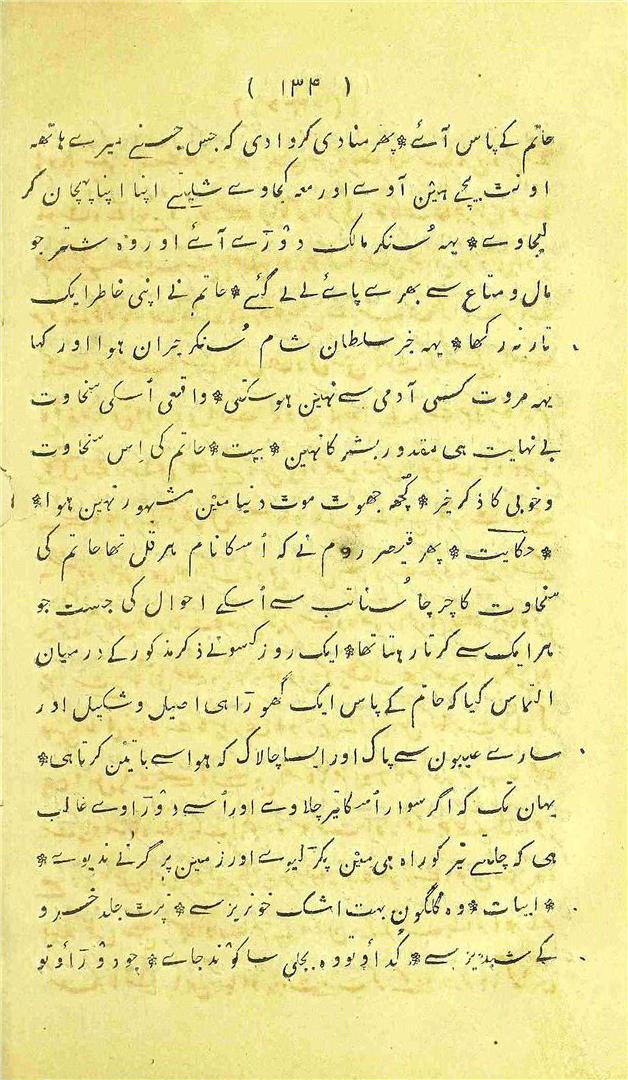 ( ۱۳۴ )
حاتم کے پاس آئے * پھر منادی کروا دی کہ جس جسنے میرے ہاتھہ
اونٹ بیچے ہیں آوے اور معہ کجاوے شلیتے اپنا اپنا پہچان کر
لیجاوے * یہہ سُنکر مالک دوڑے آئے اور وہ شتر جو
مال و متاع سے بھرے پائے لے لے گئے * حاتم نے اپنی خاطر ایک
تار نہ رکھا * یہہ خبر سلطان شام سُنکر حیران ہوا اور کہا
یہہ مروت کسی آدمی سے نہین ہو سکتی * واقعی اُسکی سخاوت
بے نہایت ہی مقدور بشر کا نہین * بیت * حاتم کی اِس سخاوت
و خوبی کا ذکر خیر * کُچھہ جھوٹ موٹ دنیا مین مشہور نہین ہوا *
* حکایت * پھر قیصر روم نے کہ اُسکا نام ہرقل تھا حاتم کی
سخاوت کا چرچا سُنا تب سے اُسکے احوال کی جست جو
ہر ایک سے کرتا رہتا تھا * ایک روز کسو نے ذکر مذکور کے درمیان
التماس کیا کہ حاتم کے پاس ایک گھوڑا ہی اصیل و شکیل اور
سارے عیبون سے پاک اور ایسا چالاک کہ ہوا سے باتین کرتا ہی *
یہان تک کہ اگر سوار اُسکا تیر چلاوے اور اُسے دوڑاوے غالب
ہی کہ چلتے تیر کو راہ ہی مین پکڑ لیوے اور زمین پر گرنے ندیوے *
* ابیات * وہ گلگون بہت اشک خونریز سے * نپٹ جلد خسرو
کے شبدیز سے * کُداؤ تو وہ بجلی سا کوند جاے * جو دوڑاؤ تو